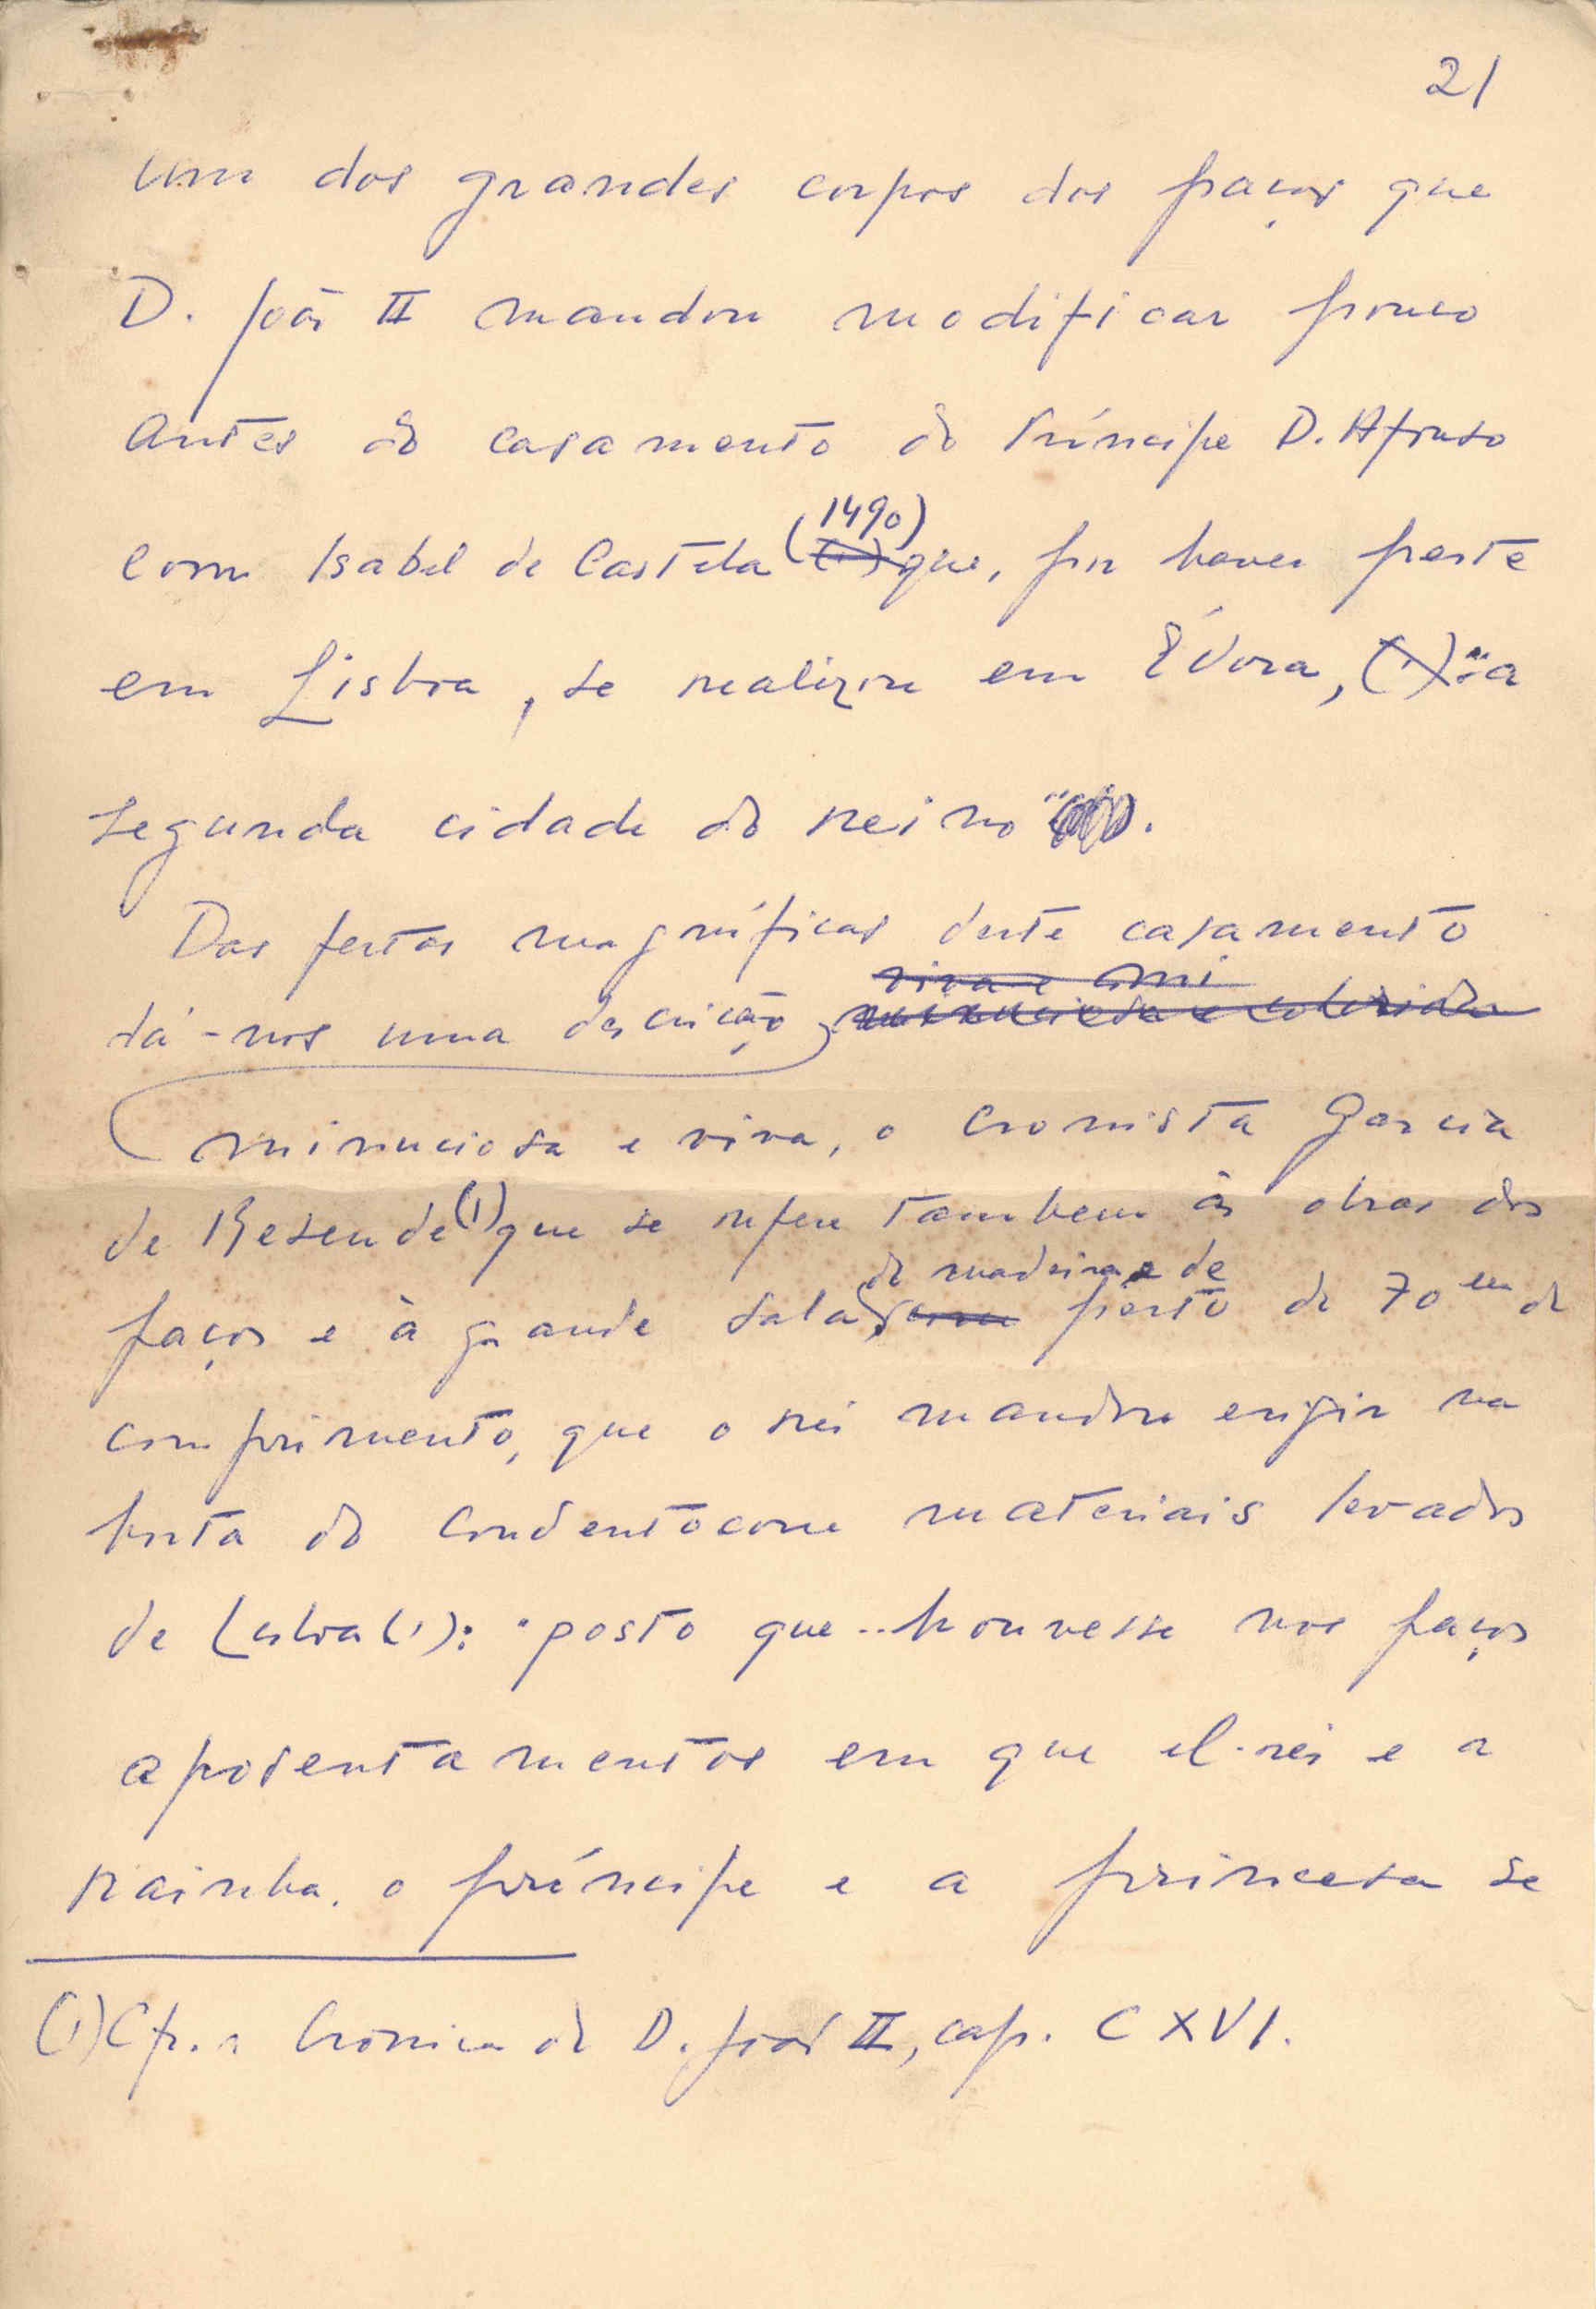 21
um dos grandes corpos dos paços que
D. João II mandou modificar pouco
antes do casamento do Príncipe D. Afonso
com Isabel de Castela (1490) que, por haver peste
em Lisboa, se realizou em Évora, "a
segunda cidade do reino".
Das festas magníficas deste casamento
viva e
dá-nos uma descrição minuciosa e colorida
minuciosa e viva, o cronista Garcia
de Resende (1) que se refere tambem às obras dos
de madeira e de
paços e à grande sala, perto de 70m de
comprimento, que o rei mandou erigir na
horta do Convento com materiais levados
de Lisboa (1): "posto que .. houvesse nos paços
aposentamentos em que el-rei e a
rainha, o príncipe e a princesa se
(1) Cfr. a Crónica de D. João II, cap. CXVI.